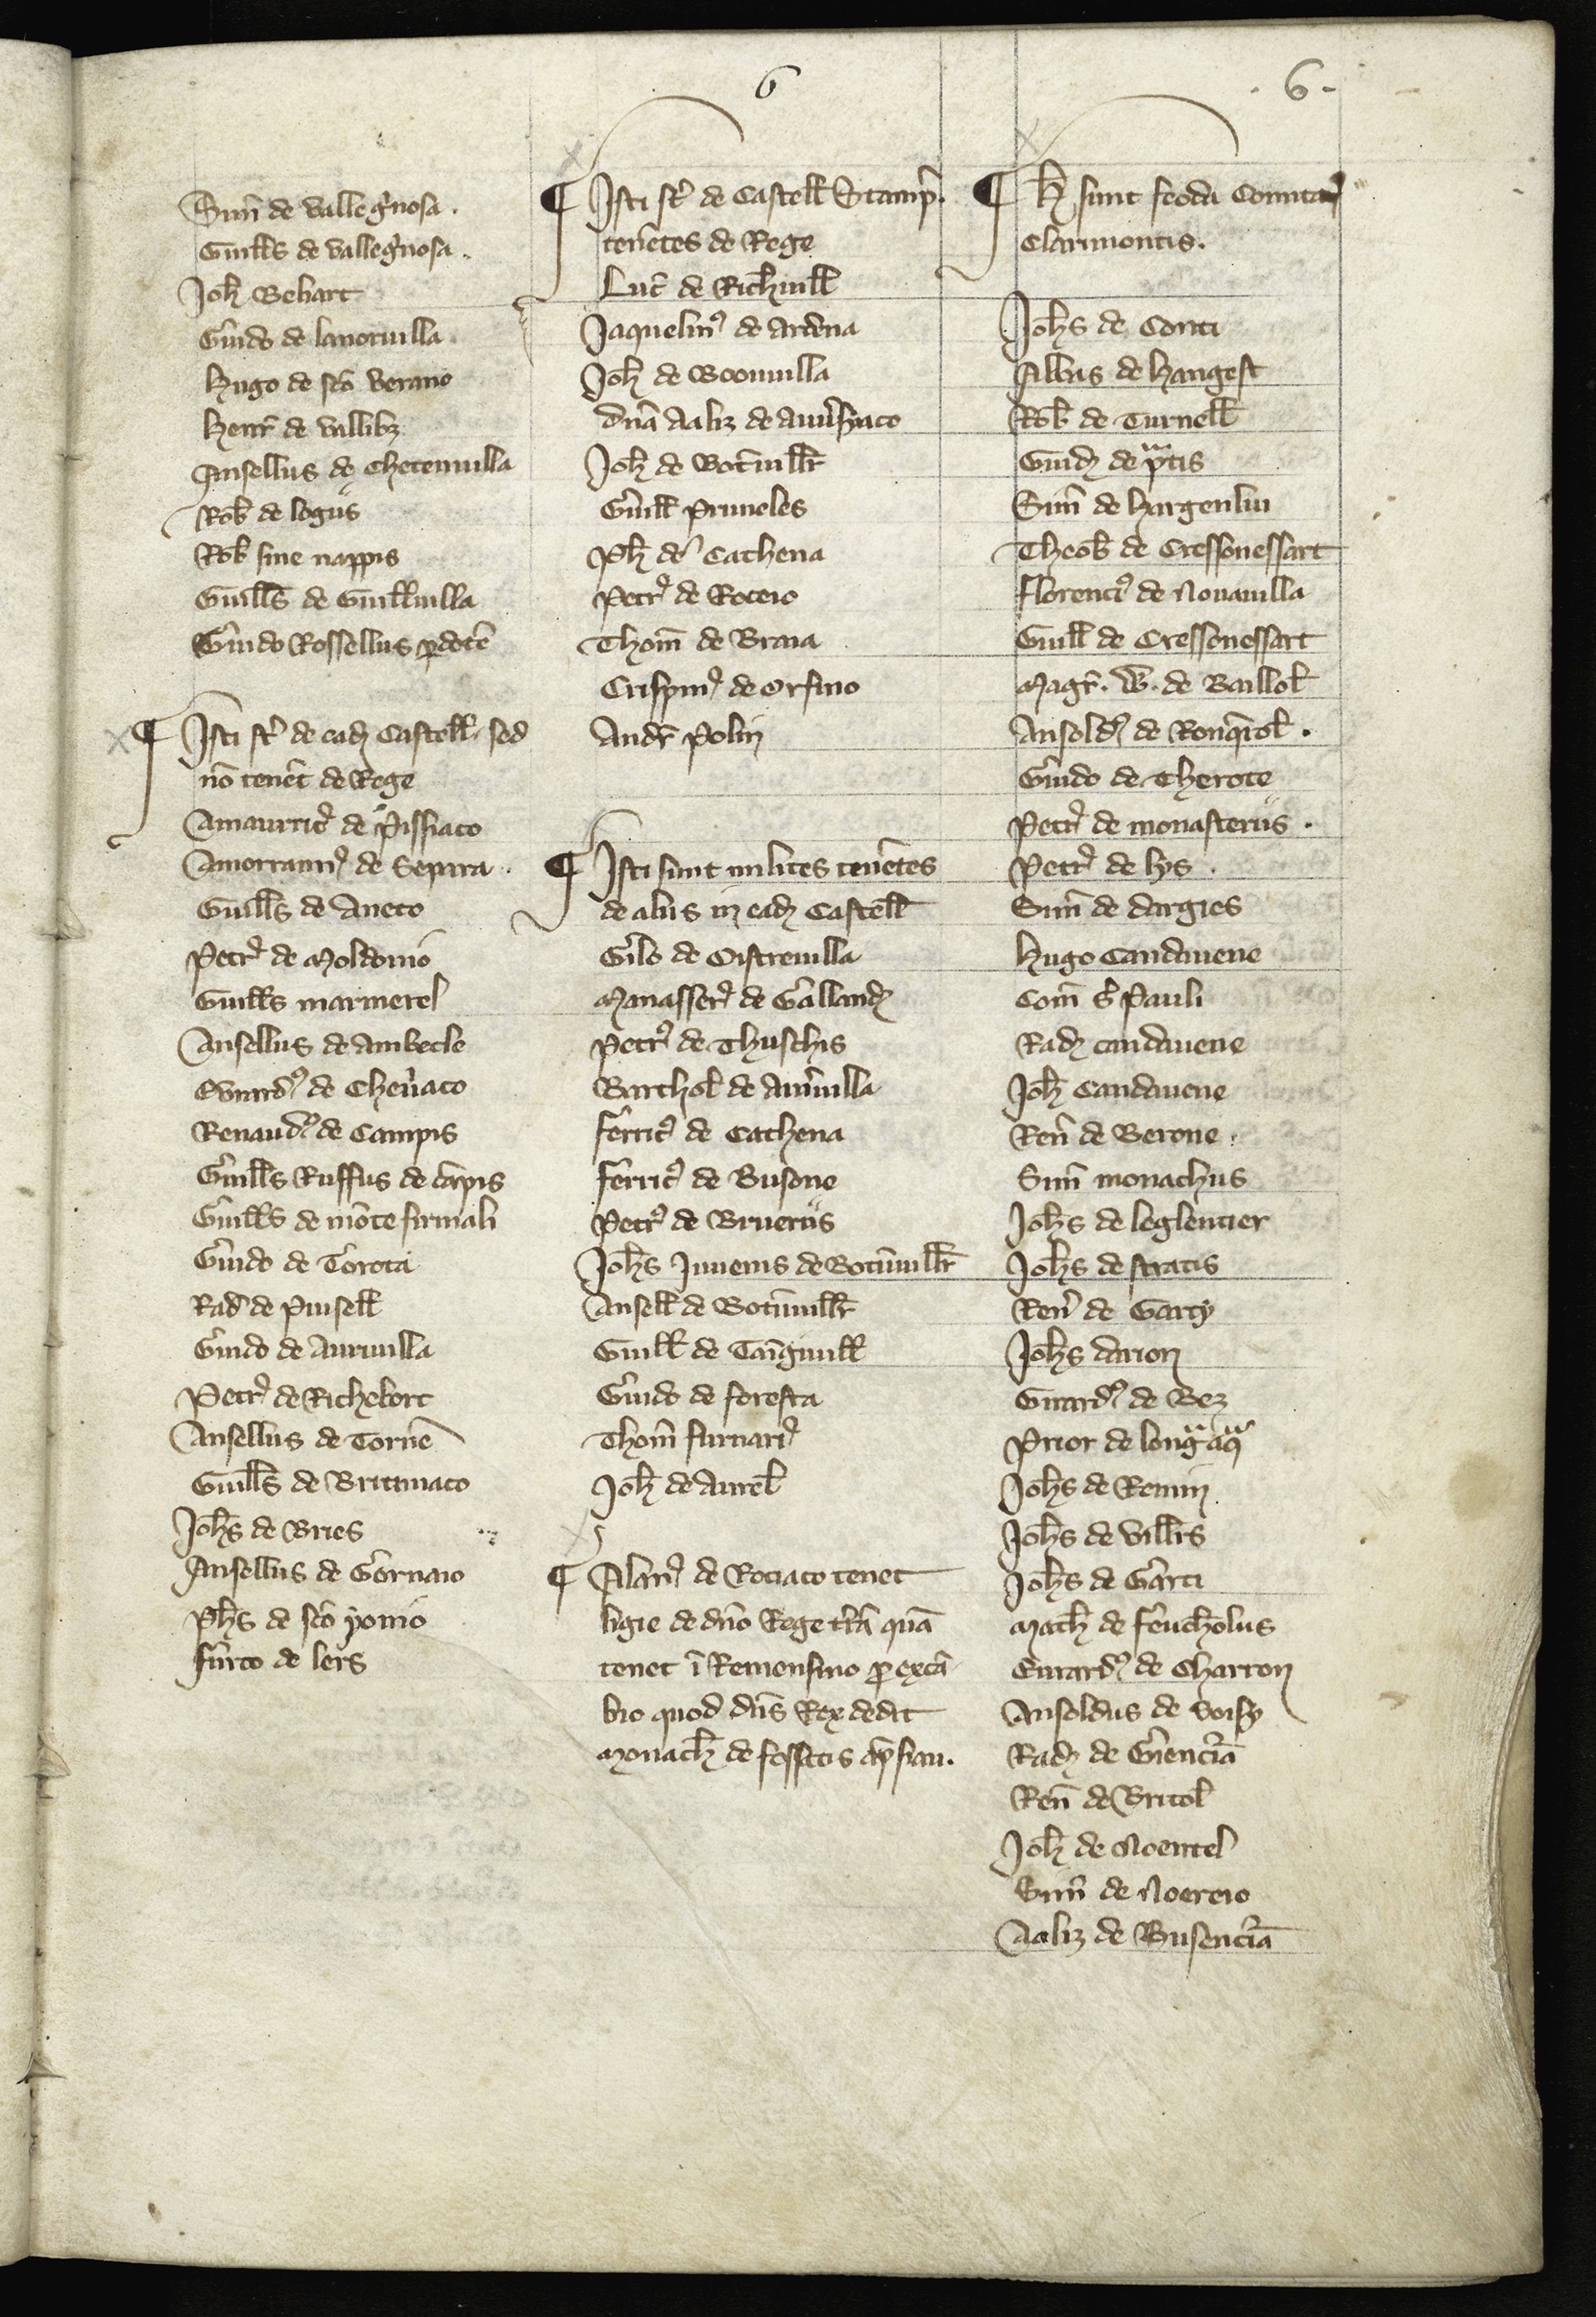 6
. 6 -
Sim̃ de vallegͥnosa .
Guilłs de vallegͥnosa .
Joh̃ Bebart
Guido de lanoruilla
hugo de sc̃o verano
henr̃ de vallibꝫ
Ansellus de Chetenuilla
Rob̃ de logiis
Rob̃ sine nappis
Guilłs de Guilłuilla
Guido Rossellus ꝓ dote
¶ Isti st̃ de eadẽ Castelł sed
nõ tenẽt de Rege
Amauricꝰ de Pissiaco
Amorrauinꝰ de Separa .
Guilłs de Aneto
Petrꝰ de Moldonio
Guilłs marmerel
Ansellus de Ambecle
Evrardꝰ de Cheuͥaco
Renaudꝰ de Campis
Guilłs Ruffus de cãpis
Guilłs de mõte firmali
Guido de Torota
Rad̃ de Puiselł
Guido de Auruilla
Petrꝰ de Richeborc
Ansellus de Torne
Guilłs de Brittiniaco
Joh̃s de Bries
Ansellus de Gornaio
Ph̃s de sc̃o yonio
furco de lers
¶ Isti st̃ de Castelł Stamp̃ .
tenẽtes de Rege
Luc̃ de Rich̃uilł
Jaquelinꝰ de Ardena
Joh̃ de Boouuilla
dñã Aaliz de Auũsiaco
Joh̃ de Botũuilłr
Guilł Pruneles
Ph̃ de Cathena
Petrꝰ de Roceio
Thom̃ de Braia
Crispinꝰ de Orsino
Andr̃ Polin
¶ Isti sunt milites tenẽtes
de aliis in eadẽ Castelł
Gilo de Oistreuilla
Manasserꝰ de Gallandẽ
Petrꝰ de Thuschis
Barthol̃ de Auũuilla
ferricꝰ de Cathena
ferricꝰ de Busone
Petrꝰ de Brueriis
Joh̃s Juuenis de Botũuilłr
Anselł de Botũuilłr
Guilł de Tãignuilł
Guido de foresta
Thom̃ furnariꝰ
Joh̃ de Aurel̃
¶ Alanꝰ de Rociaco tenet
ligie de dño Rege tr̃ã quã
tenet ĩ Remonsino ꝓ excã
bio quod dñs Rex dedit
Monach̃ de fossatis ap̃ sian .
¶ h̃ sunt feoda Comitatꝰ
Clarimontis .
Joh̃s de Conti
Albus de hangest
Rob̃ de Turnelł
Guidẽ de pͣtis
Sim̃ de hargenliu
Theob̃ de Cressonessart
florentꝰ de Nouauilla
Guilł de Cressonessart
Magr̃ . W . de Baillol̃
Ansoldꝰ de Ronq̃rol̃ .
Guido de Therote
Petrꝰ de monasteriis .
Petrꝰ de lys .
Sim̃ de dargies
hugo Candauene
Com̃ Sͥ Pauli
Radẽ candauene
Joh̃ Candauene
Reñ de Berone .
Sim̃ monachus
Joh̃s de leglentier
Joh̃s de stratis
Reñ de Garty
Joh̃s darion
Girardꝰ de Bez
Prior de longͣ aqͣ
Joh̃s de Remin
Joh̃s de vilłrs
Joh̃s de Garti
Math̃ de feuch̃olus
Eurardꝰ de Charron
Ansoldus de voisy
Radẽ de Giencrͥã
Reñ de Britol̃
Joh̃ de Noentel
Sim̃ de Noereio
Aaliz de Busencrͥã